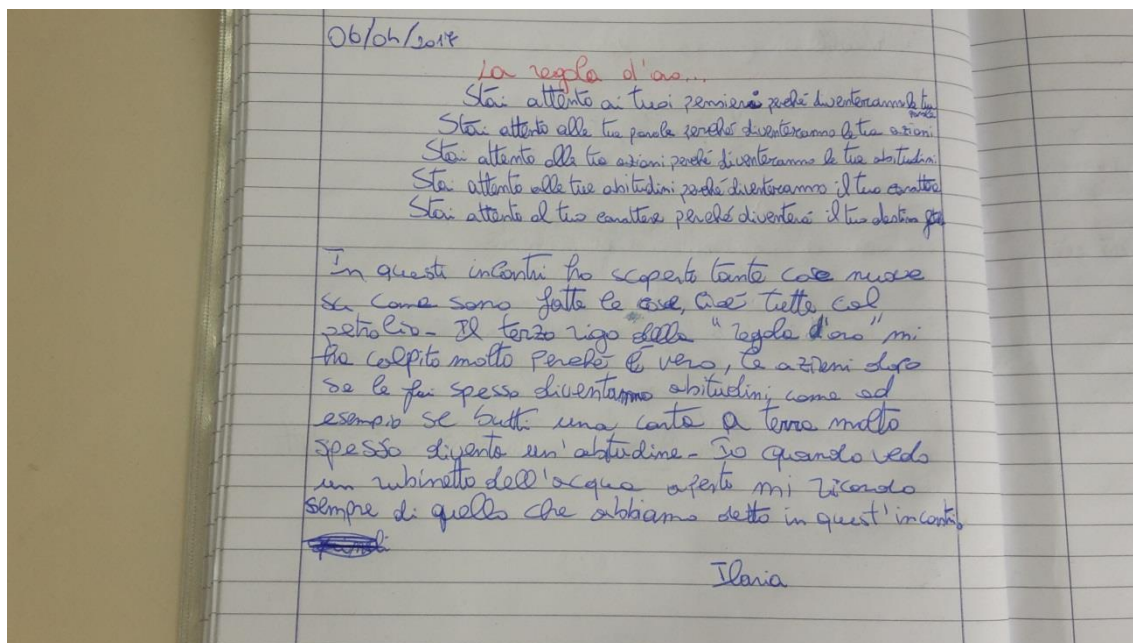 06/04/2017
La regola d'oro...
Stai attento ai tuoi pensieri perché diventeranno le tue parole
Stai attento alle tue parole perché diventeranno le tue azioni
Stai attento alle tue azioni perché diventeranno le tue abitudini
Stai attento alle tue abitudini perché diventeranno il tuo carattere
Stai attento al tuo carattere perché diventerà il tuo destino
In questi incontri ho scoperto tante cose nuove
su come sono fatte le cose, cioè tutte col
petrolio - Il terzo rigo della "regola d'oro" mi
ha colpito molto perché è vero, le azioni dopo
se le fai spesso diventanno abitudini, come ad
esempio se butti una carta a terra molto
spesso diventa un'abitudine - Io quando vedo
un rubinetto dell'acqua aperto mi ricordo
sempre di quello che abbiamo detto in quest'incontri.
Ilaria